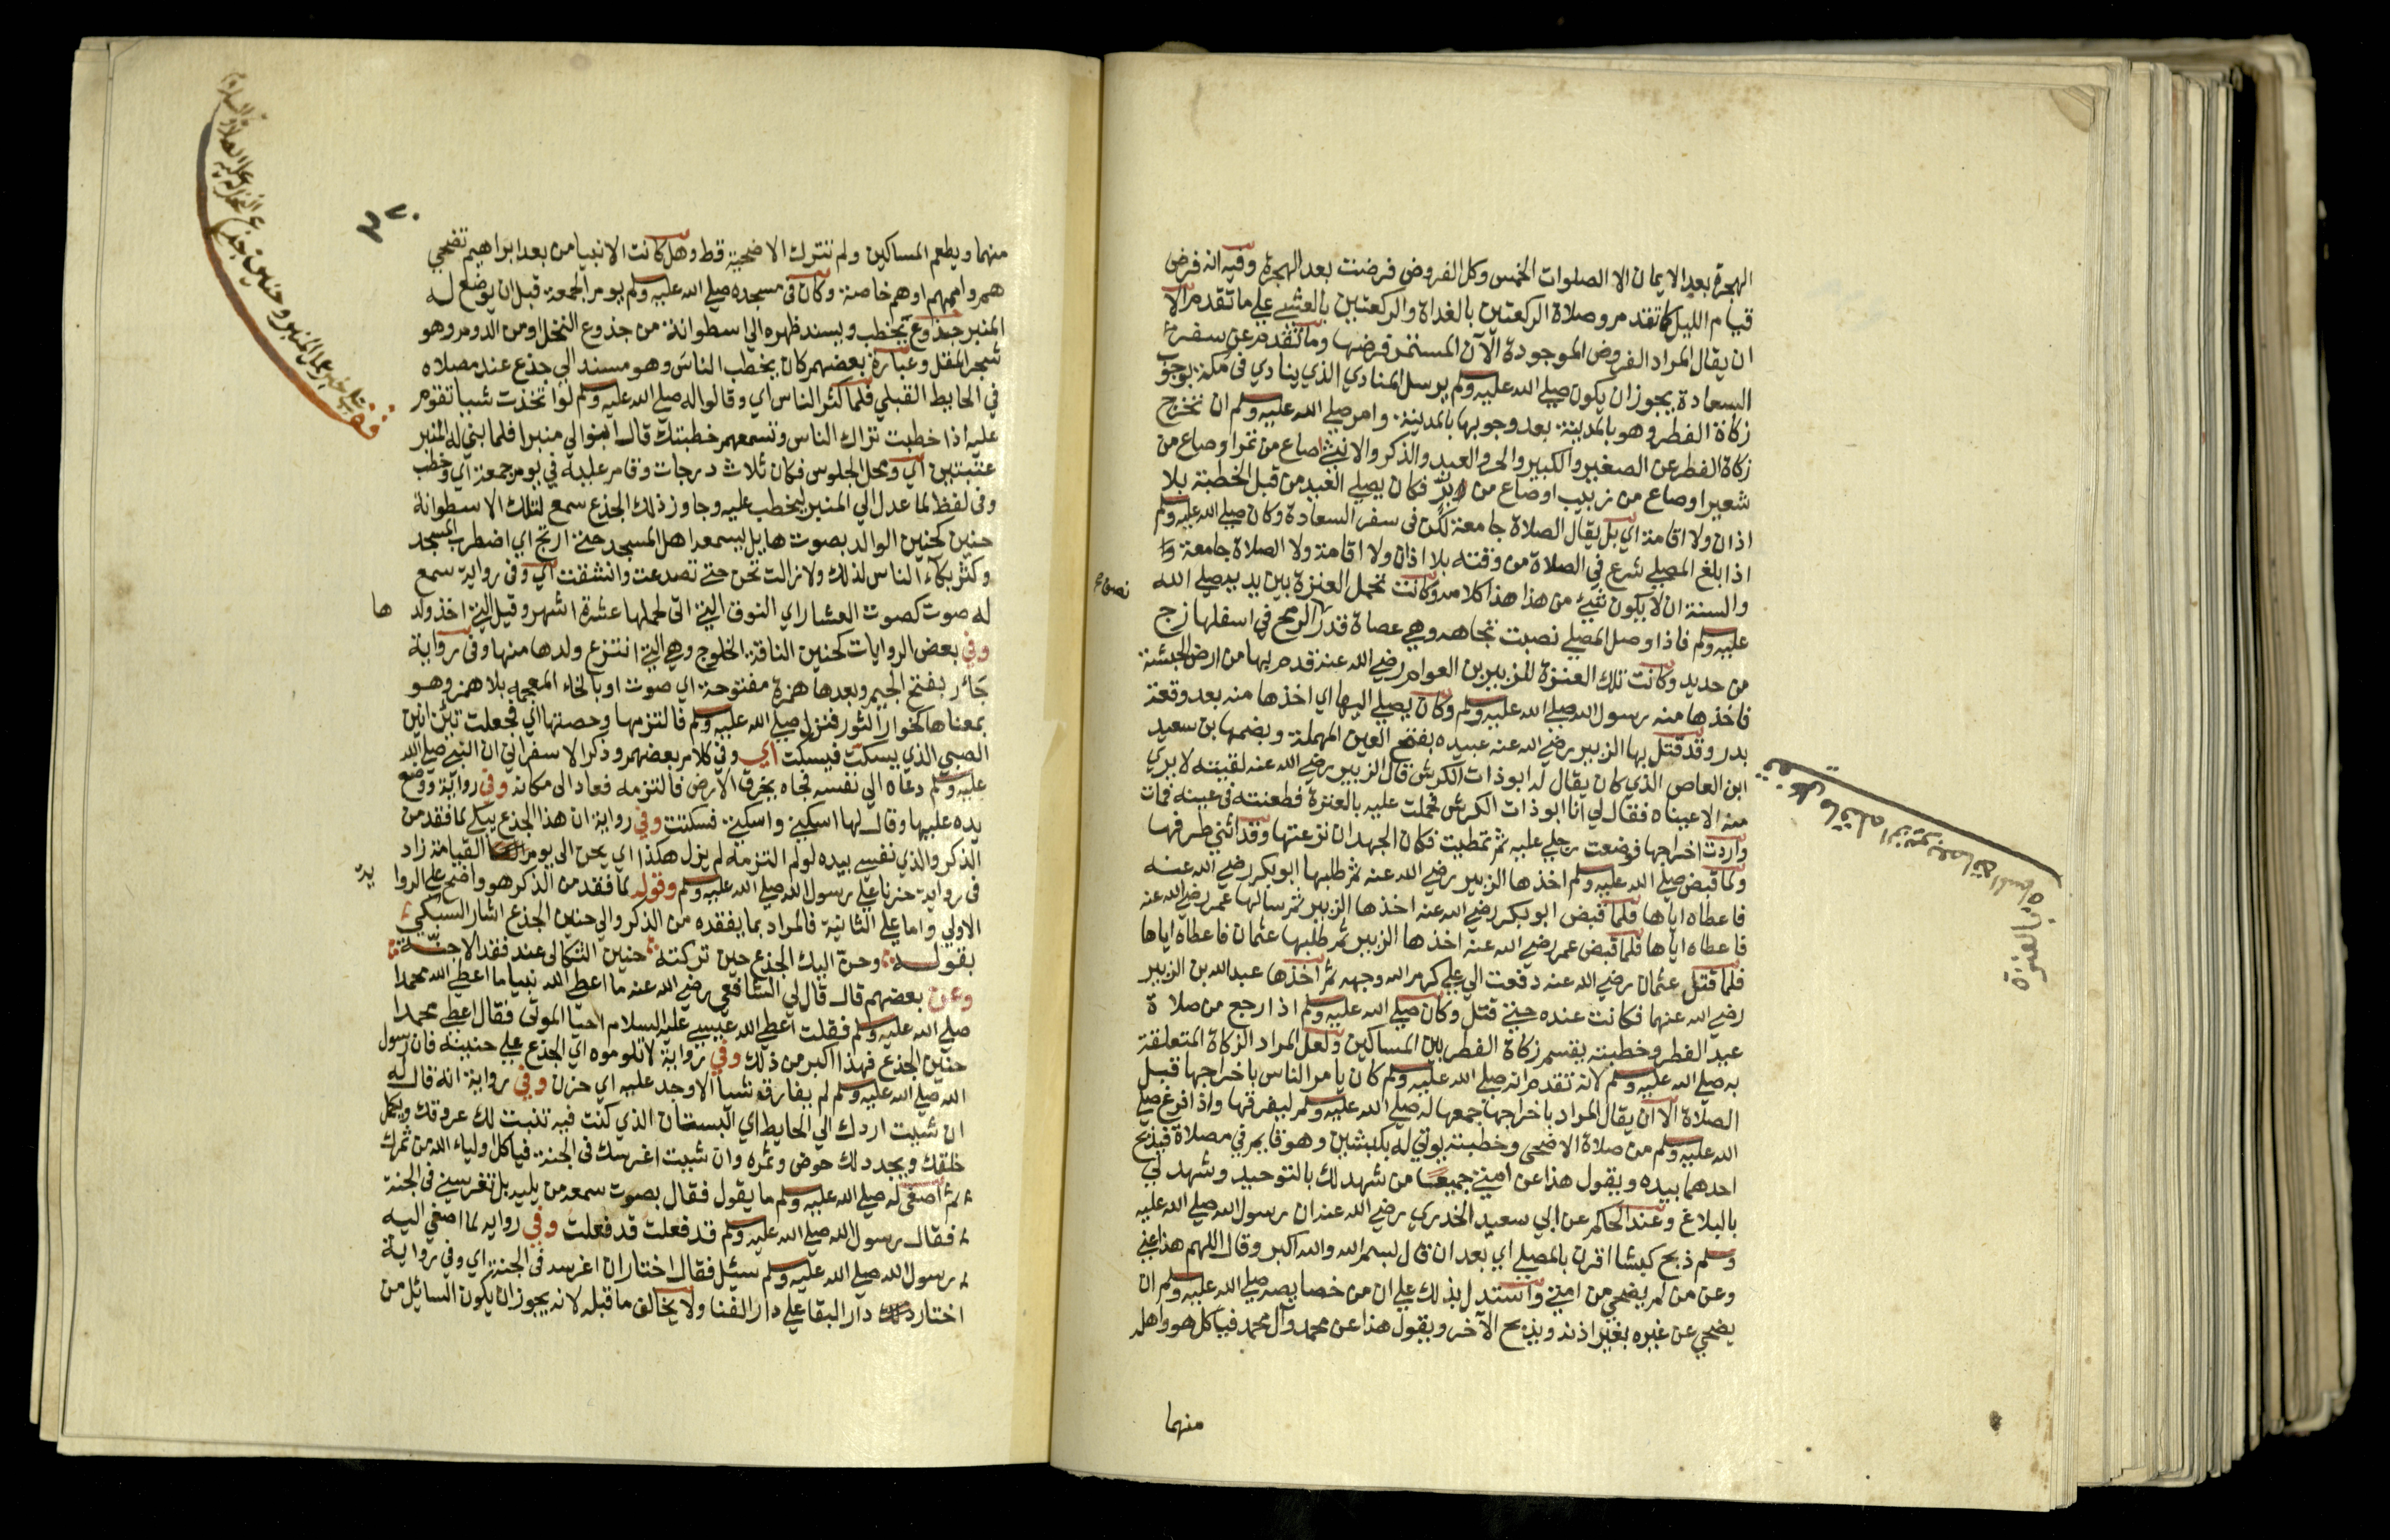 الهجرة بعد الايمان الا الصلوات الخمس وكل الفروض فرضت بعد الهجرة وفيه انه فرض
قيام الليل كما تقدم وصلاة الركعتين بالغداة والركعتين بالعشي علي ما تقدم الا
ان يقال المراد الفروض الموجودة الآن المستمر فرضها وما تقدم عن سفر
السعادة يجوز ان يكون صلي الله عليه وسلم يرسل المنادي الذي ينادي في مكة بوجوب
زكاة الفطر وهو بالمدينة بعد وجوبها بالمدينة وامر صلي الله عليه وسلم ان تخرج
زكاة الفطر عن الصغير والكبير والحر والعبد والذكر والانثي صاع من تمر او صاع من
شعير او صاع من زبيب او صاع من بر فكان يصلي العيد من قبل الخطبة بلا
اذان ولا اقامة اي بل يقال الصلاة جامعة لكن في سفر السعادة وكان صلي الله عليه وسلم
اذا بلغ المصلي شرع في الصلاة من وقته بلا اذان ولا اقامة ولا الصلاة جامعة
والسنة ان لا يكون شيء من هذا هذا كلامه وكانت تحمل العنزة بين يديه صلي الله
عليه وسلم فاذا وصل المصلي نصبت تجاهه وهي عصاة قدر الرمح في اسفلها زج
من حديد وكانت تلك العنزة للزبير بن العوام رضي الله عنه قدم بها من ارض الحبشة
فاخذها منه رسول الله صلي الله عليه وسلم وكان يصلي اليها اي اخذها منه بعد وقعة
بدر وقد قتل بها الزبير رضي الله عنه عبيده بفتح العين المهملة وبضمها بن سعيد
ابن العاص الذي كان يقال له ابو ذات الكرش قال الزبير رضي الله عنه لقيته لا يري
منه الا عيناه فقال لي انا ابو ذات الكرش فحملت عليه بالعنزة فطعنته في عينه فمات
واردت اخراجها فوضعت رجلي عليه ثم تمطيت فكان الجهد ان نزعتها وقد انثني طرفها
ولما قبض صلي الله عليه وسلم اخذها الزبير رضي الله عنه ثم طلبها ابو بكر رضي الله عنه
فاعطاه اياها فلما قبض ابو بكر رضي الله عنه اخذها الزبير ثم سالها عمر رضي الله عنه
فاعطاه اياها فلما قبض عمر رضي الله عنه اخذها الزبير ثم طلبها عثمان فاعطاه اياها
فلما قتل عثمان رضي الله عنه دفعت الي علي كرم الله وجهه ثم اخذها عبد الله بن الزبير
رضي الله عنهما فكانت عنده حتي قتل وكان صلي الله عليه وسلم اذا رجع من صلاة
عيد الفطر وخطبته يقسم زكاة الفطر بين المساكين ولعل المراد الزكاة المتعلقة
به صلي الله عليه وسلم لانه تقدم انه صلي الله عليه وسلم كان يامر الناس باخراجها قبل
الصلاة الا ان يقال المراد باخراجها جمعها له صلي الله عليه وسلم ليفرقها واذا فرغ صلي
الله عليه وسلم من صلاة الاضحي وخطبته يوتي له بكبشين وهو قايم في مصلاه فيذبح
احدهما بيده ويقول هذا عن امتي جميعا من شهد لك بالتوحيد وشهد لي
بالبلاغ وعند الحاكم عن ابي سعيد الخدري رضي الله عنه ان رسول الله صلي الله عليه
وسلم ذبح كبشا اقرن بالمصلي اي بعد ان قال بسم الله والله اكبر وقال اللهم هذا عني
وعن من لم يضحي من امتي واستدل بذلك علي ان من خصايصه صلي الله عليه وسلم ان
يضحي عن غيره بغير اذنه ويذبح الآخر ويقول هذا عن محمد وآل محمد فياكل هو واهله
منهما
منهما ويطعم المساكين ولم تترك الاضحية قط وهل كانت الانبيا من بعد ابراهيم تضحي
هم واممهم او هم خاصة وكان في مسجده صلي الله عليه وسلم يوم الجمعة قبل ان يوضع له
المنبر جذوع يخطب ويسند ظهره الي اسطوانة من جذوع النخل او من الدوم وهو
شجر المقل وعبارة بعضهم كان يخطب الناس وهو مسند الي جذع عند مصلاه
في الحايط القبلي فلما كثر الناس اي وقالوا له صلي الله عليه وسلم لو اتخذت شيا تقوم
عليه اذا خطبت تراك الناس وتسمعهم خطبتك قال ابنوا لي منبرا فلما بني له المنبر
عتبتين اي ومحل الجلوس فكان ثلاث درجات وقام عليه في يوم جمعة اي وخطب
وفي لفظ لما عدل الي المنبر ليخطب عليه وجاوز ذلك الجذع سمع لتلك الاسطوانة
حنين كحنين الواله بصوت هايل يسمعه اهل المسجد حتي ارتج اي اضطرب المسجد
وكثر بكاء الناس لذلك ولا زالت تحن حتي تصدعت وانشقت اي وفي رواية سمع
له صوت كصوت العشار اي النوق التي اتي لحملها عشرة اشهر وقيل التي اخذ ولدها
وفي بعض الروايات كحنين الناقة الخلوج وهي التي انتزع ولدها منها وفي رواية
جأر بفتح الجيم وبعدها همزة مفتوحة اي صوت او بالخاء المعجمة بلا همز وهو
بمعناها كخوار الثور فنزل صلي الله عليه وسلم فالتزمها وحضنها اي فجعلت تئن انين
الصبي الذي يسكت فيسكت اي وفي كلام بعضهم وذكر الاسفرايني ان النبي صلي الله
عليه وسلم دعاه الي نفسه فجاه يخرق الارض فالتزمه فعاد الي مكانه وفي رواية ووضع
يده عليها وقال لها اسكني واسكني فسكنت وفي رواية ان هذا الجذع يبكي لما فقد من
الذكر والذي نفسي بيده لو لم التزمه لم يزل هكذا اي يحن الي يوم القيامة زاد
في رواية حزنا علي رسول الله صلي الله عليه وسلم وقوله لما فقد من الذكر هو واضح علي الروا
ية
الاولي واما علي الثانية فالمراد بما يفقده من الذكر والي حنين الجذع اشار السبكي
بقوله وحن اليك الجذع حين تركته حنين الثكالي عند فقد الاحبة
وعن بعضهم قال قال لي الشافعي رضي الله عنه ما اعطي الله نبيا ما اعطي الله محمدا
صلي الله عليه وسلم فقلت اعطي الله عيسي عليه السلام احيا الموتي فقال اعطي محمدا
حنين الجذع فهذا اكبر من ذلك وفي رواية لا تلوموه اي الجذع علي حنينه فان رسول
الله صلي الله عليه وسلم لم يفارق شيا الا وجد عليه اي حزن وفي رواية انه قال له
ان شيت اردك الي الحايط اي البستان الذي كنت فيه تنبت لك عروقك ويكمل
خلقك ويجدد لك خوص وثمره وان شيت اغرسك في الجنة فياكل اولياء الله من ثمرك
ثم اصغي له صلي الله عليه وسلم ما يقول فقال بصوت سمعه من يليه بل تغرسني في الجنة
فقال رسول الله صلي الله عليه وسلم قد فعلت قد فعلت وفي رواية لما اصغي اليه
رسول الله صلي الله عليه وسلم سئل فقال اختار ان اغرسه في الجنة اي وفي رواية
اختار دار البقا علي دار الفنا ولا يخالف ما قبله لانه يجوز ان يكون السايل من